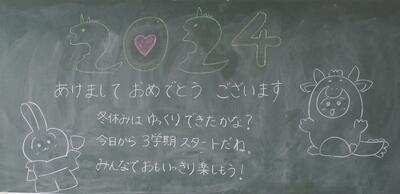 2024
あけまして おめでとう ございます
冬休みは ゆっくりできたかな？
今日から 3学期 スタートだね。
みんなで おもいっきり 楽しもう！